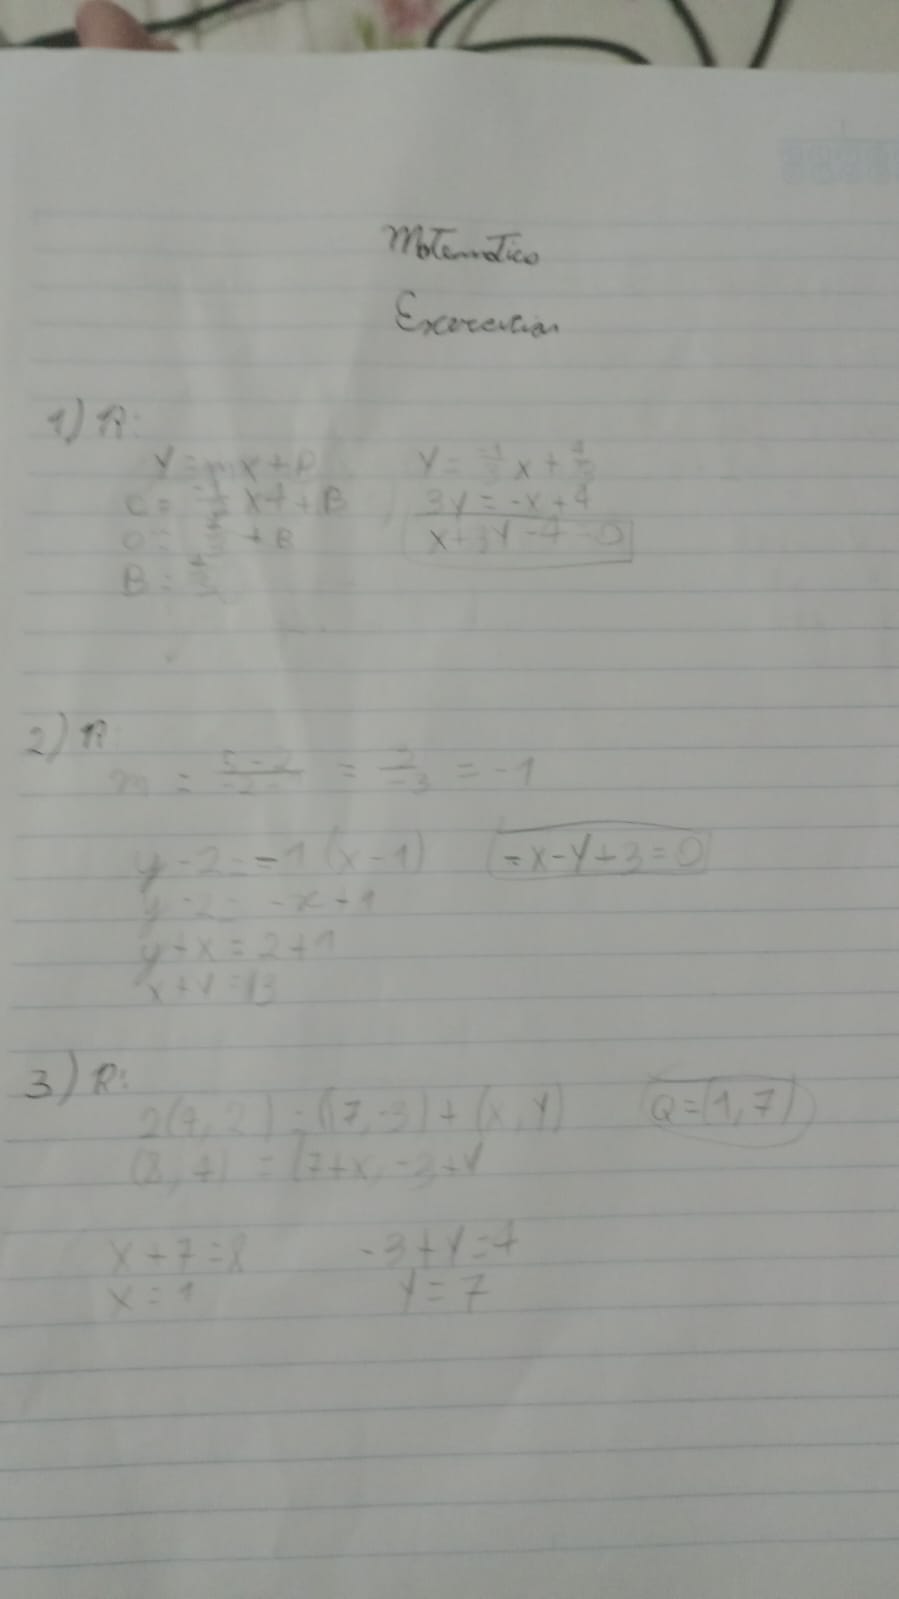 Matematica
Exercicios
1) R:
y = mx + B
0 = -1/3 x4 + B
0 = -4/3 + B
B = 4/3
y = -1/3 x + 4/3
3y = -x + 4
x + 3y - 4 = 0
2) R:
= -1
y - 2 = -1 (x - 1)
y - 2 = -x + 1
y + x = 2 + 1
x + y = 3
= x - y + 3 = 0
3) R:
2(4, 2) = (7, -3) + (x, y)
(8, 4) = 7 + x, -3 + y
x + 7 = 8
x = 1
-3 + y = 4
y = 7
Q = (1, 7)